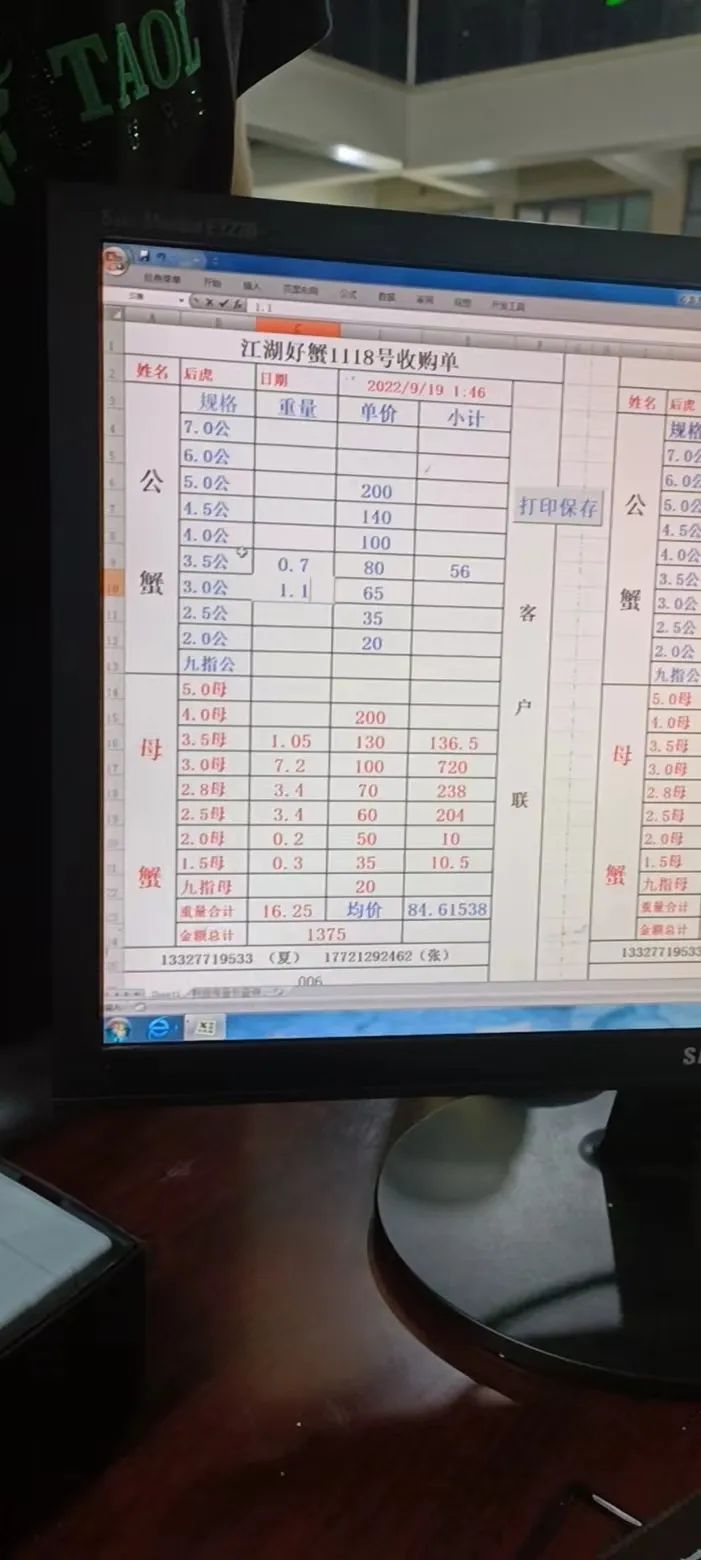 TAOL
开始 插入 页面布局 公式 数据 审阅 视图 开发工具
1.1
江湖好蟹1118号收购单
姓名 后虎 日期 2022/9/19 1:46
规格 重量 单价 小计
公蟹
7.0公
6.0公
5.0公 200
4.5公 140
4.0公 100
3.5公 0.7 80 56
3.0公 1.1 65
2.5公 35
2.0公 20
九指公
母蟹
5.0母
4.0母 200
3.5母 1.05 130 136.5
3.0母 7.2 100 720
2.8母 3.4 70 238
2.5母 3.4 60 204
2.0母 0.2 50 10
1.5母 0.3 35 10.5
九指母 20
重量合计 16.25 均价 84.61538
金额总计 1375
13327719533 (夏) 17721292462(张)
006
打印保存
客户联
姓名 后虎
规格
公蟹
7.0公
6.0公
5.0公
4.5公
4.0公
3.5公
3.0公
2.5公
2.0公
九指公
母蟹
5.0母
4.0母
3.5母
3.0母
2.8母
2.5母
2.0母
1.5母
九指母
重量合计
金额总计
13327719533
SA